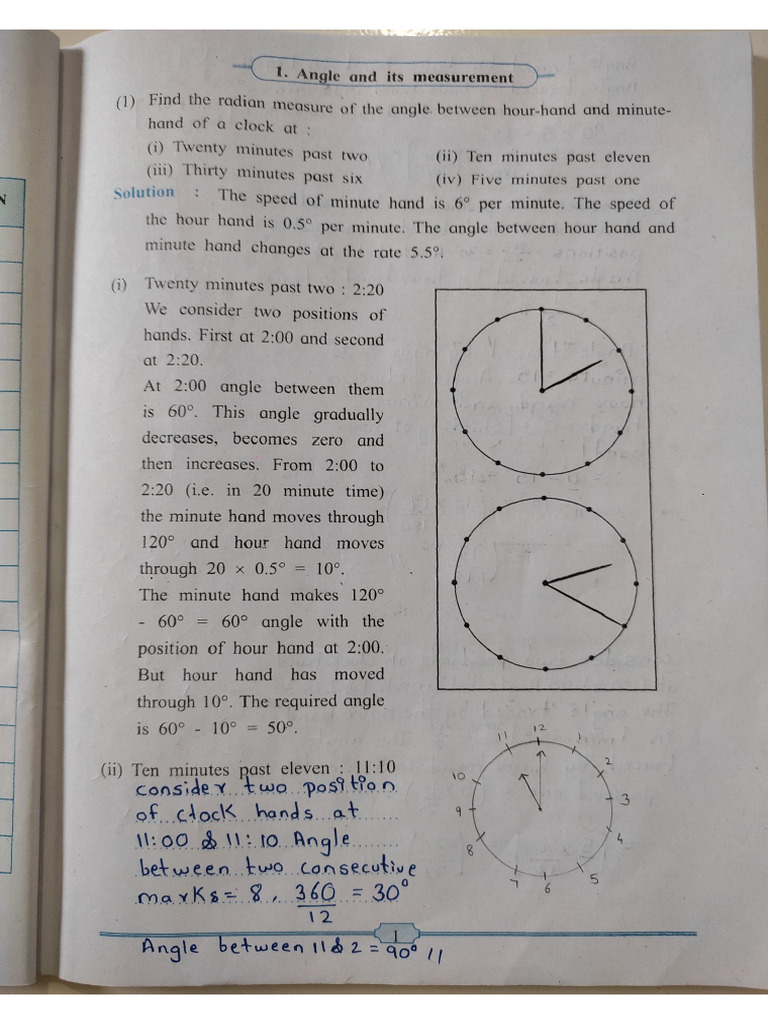 1. Angle and its measurement
(1) Find the radian measure of the angle between hour-hand and minute-
hand of a clock at :
(i) Twenty minutes past two (ii) Ten minutes past eleven
(iii) Thirty minutes past six (iv) Five minutes past one
Solution : The speed of minute hand is 6° per minute. The speed of
the hour hand is 0.5° per minute. The angle between hour hand and
minute hand changes at the rate 5.5°.
(i) Twenty minutes past two : 2:20
We consider two positions of
hands. First at 2:00 and second
at 2:20.
At 2:00 angle between them
is 60°. This angle gradually
decreases, becomes zero and
then increases. From 2:00 to
2:20 (i.e. in 20 minute time)
the minute hand moves through
120° and hour hand moves
through 20 × 0.5° = 10°.
The minute hand makes 120°
- 60° = 60° angle with the
position of hour hand at 2:00.
But hour hand has moved
through 10°. The required angle
is 60° - 10° = 50°.
(ii) Ten minutes past eleven : 11:10
consider two position
of clock hands at
11:00 & 11:10 Angle
between two consecutive
marks = 8, 360 = 30°
12
1
Angle between 11 & 2 = 90° //
12
11 1
10 2
9 3
8 4
7 5
6
N